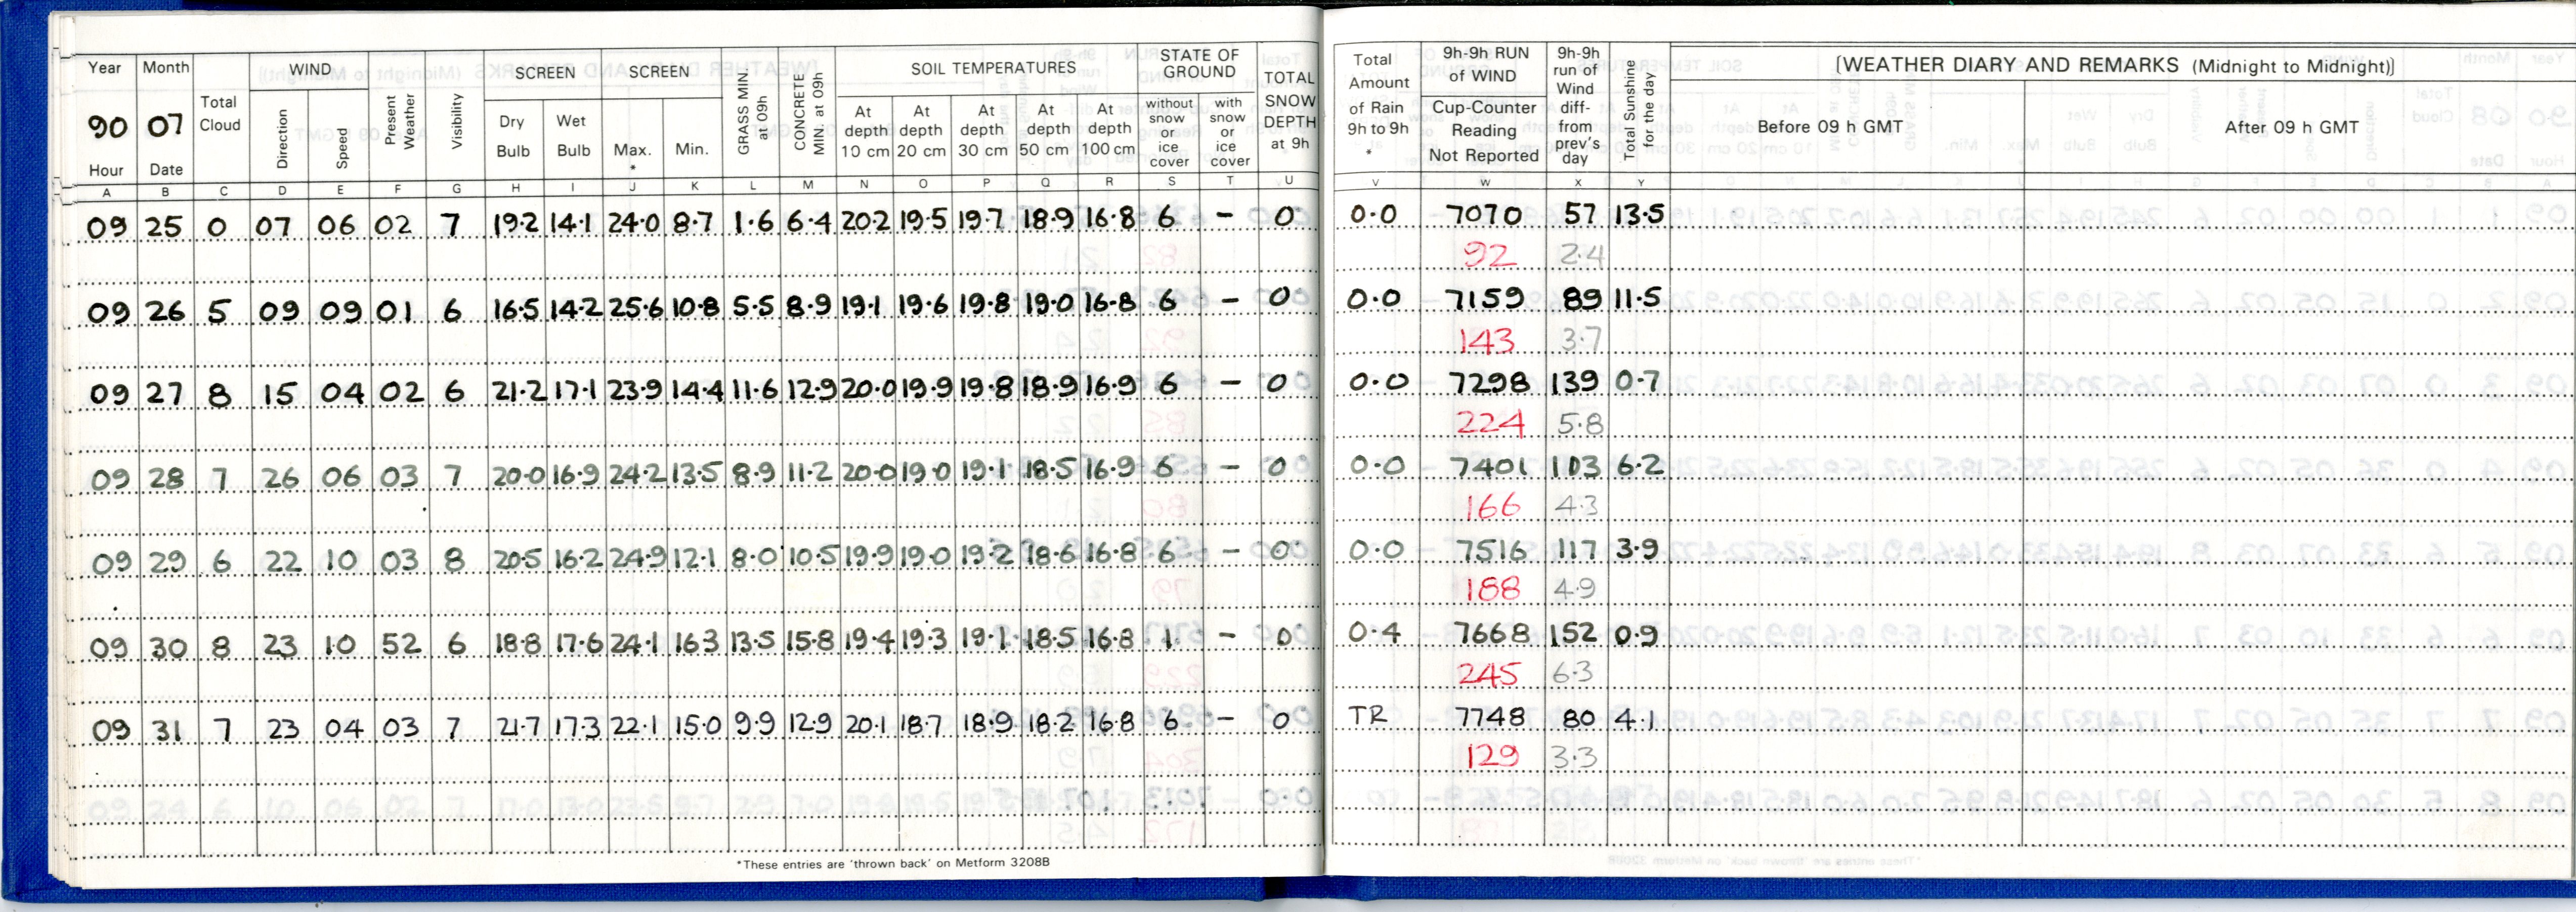 Year Month Total Cloud WIND Direction Speed Present Weather Visibility SCREEN Dry Bulb Wet Bulb SCREEN Max. * Min. GRASS MIN. at 09h CONCRETE MIN. at 09h SOIL TEMPERATURES At depth 10 cm At depth 20 cm At depth 30 cm At depth 50 cm At depth 100 cm STATE OF GROUND without snow or ice cover with snow or ice cover TOTAL SNOW DEPTH at 9h Total Amount of Rain 9h to 9h * 9h-9h RUN of WIND Cup-Counter Reading Not Reported 9h-9h run of Wind diff- from prev's day Total Sunshine for the day [WEATHER DIARY AND REMARKS (Midnight to Midnight)]
90 07
Hour Date Before 09 h GMT After 09 h GMT
A B C D E F G H I J K L M N O P Q R S T U V W X Y
09 25 0 07 06 02 7 19.2 14.1 24.0 8.7 1.6 6.4 20.2 19.5 19.7 18.9 16.8 6 – 0 0.0 7070 57 13.5
92 2.4
09 26 5 09 09 01 6 16.5 14.2 25.6 10.8 5.5 8.9 19.1 19.6 19.8 19.0 16.8 6 – 0 0.0 7159 89 11.5
143 3.7
09 27 8 15 04 02 6 21.2 17.1 23.9 14.4 11.6 12.9 20.0 19.9 19.8 18.9 16.9 6 – 0 0.0 7298 139 0.7
224 5.8
09 28 7 26 06 03 7 20.0 16.9 24.2 13.5 8.9 11.2 20.0 19.0 19.1 18.5 16.9 6 – 0 0.0 7401 103 6.2
166 4.3
09 29 6 22 10 03 8 20.5 16.2 24.9 12.1 8.0 10.5 19.9 19.0 19.2 18.6 16.8 6 – 0 0.0 7516 117 3.9
188 4.9
09 30 8 23 10 52 6 18.8 17.6 24.1 16.3 13.5 15.8 19.4 19.3 19.1 18.5 16.8 1 – 0 0.4 7668 152 0.9
245 6.3
09 31 7 23 04 03 7 21.7 17.3 22.1 15.0 9.9 12.9 20.1 18.7 18.9 18.2 16.8 6 – 0 TR 7748 80 4.1
129 3.3
*These entries are 'thrown back' on Metform 3208B